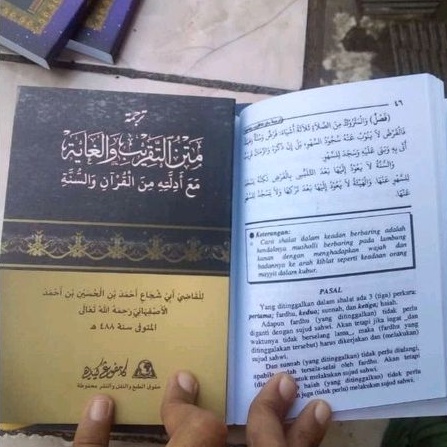 ترجمة
متن التقريب والغاية
مع أدلته من القرآن والسنة
للقاضي أبي شجاع أحمد بن الحسين بن أحمد
الأصفهاني رحمه الله تعالى
المتوفى سنة ٤٨٨ هـ
حقوق الطبع والنقل والنشر محفوظة
٤٦
(فصل) والمتروك من الصلاة ثلاثة أشياء، فرض وسنة
فالفرض لا ينوب عنه سجود السهو، بل إن ذكره والزمان قريب
أتى به وبنى عليه وسجد للسهو.
والسنة لا يعود إليها بعد التلبس بالفرض لكنه يسجد
للسهو عنها. والهيئة لا يعود إليها بعد تركها ولا يسجد للسهو
عنها.
Keterangan:
Cara shalat dalam keadan berbaring adalah
hendalnya mushalli berbaring pada lambung
kanan dengan menghadapkan wajah dan
badannya ke arah kiblat seperti keadaan orang
mayyit dalam kubur.
PASAL
Yang ditinggalkan dalam shalat ada 3 (tiga) perkara:
pertama; fardhu, kedua; sunnah, dan ketiga; haiah.
Adapun fardhu (yang ditinggalkan) tidak perlu
diganti dengan sujud sahwi. Akan tetapi jika ingat dan
waktunya tidak berselang lama, maka (fardhu yang
ditinggalkan tersebut) harus dikerjakan dan (melakukan)
sujud sahwi.
Dan sunnah (yang ditinggalkan) tidak perlu diulangi,
apabila telah tersela-selai oleh fardhu. Akan tetapi
untuk melakukan sujud sahwi.
haiah (yang ditinggalkan) tidak
juga (tidak perlu) melakukan sujud sahwi.